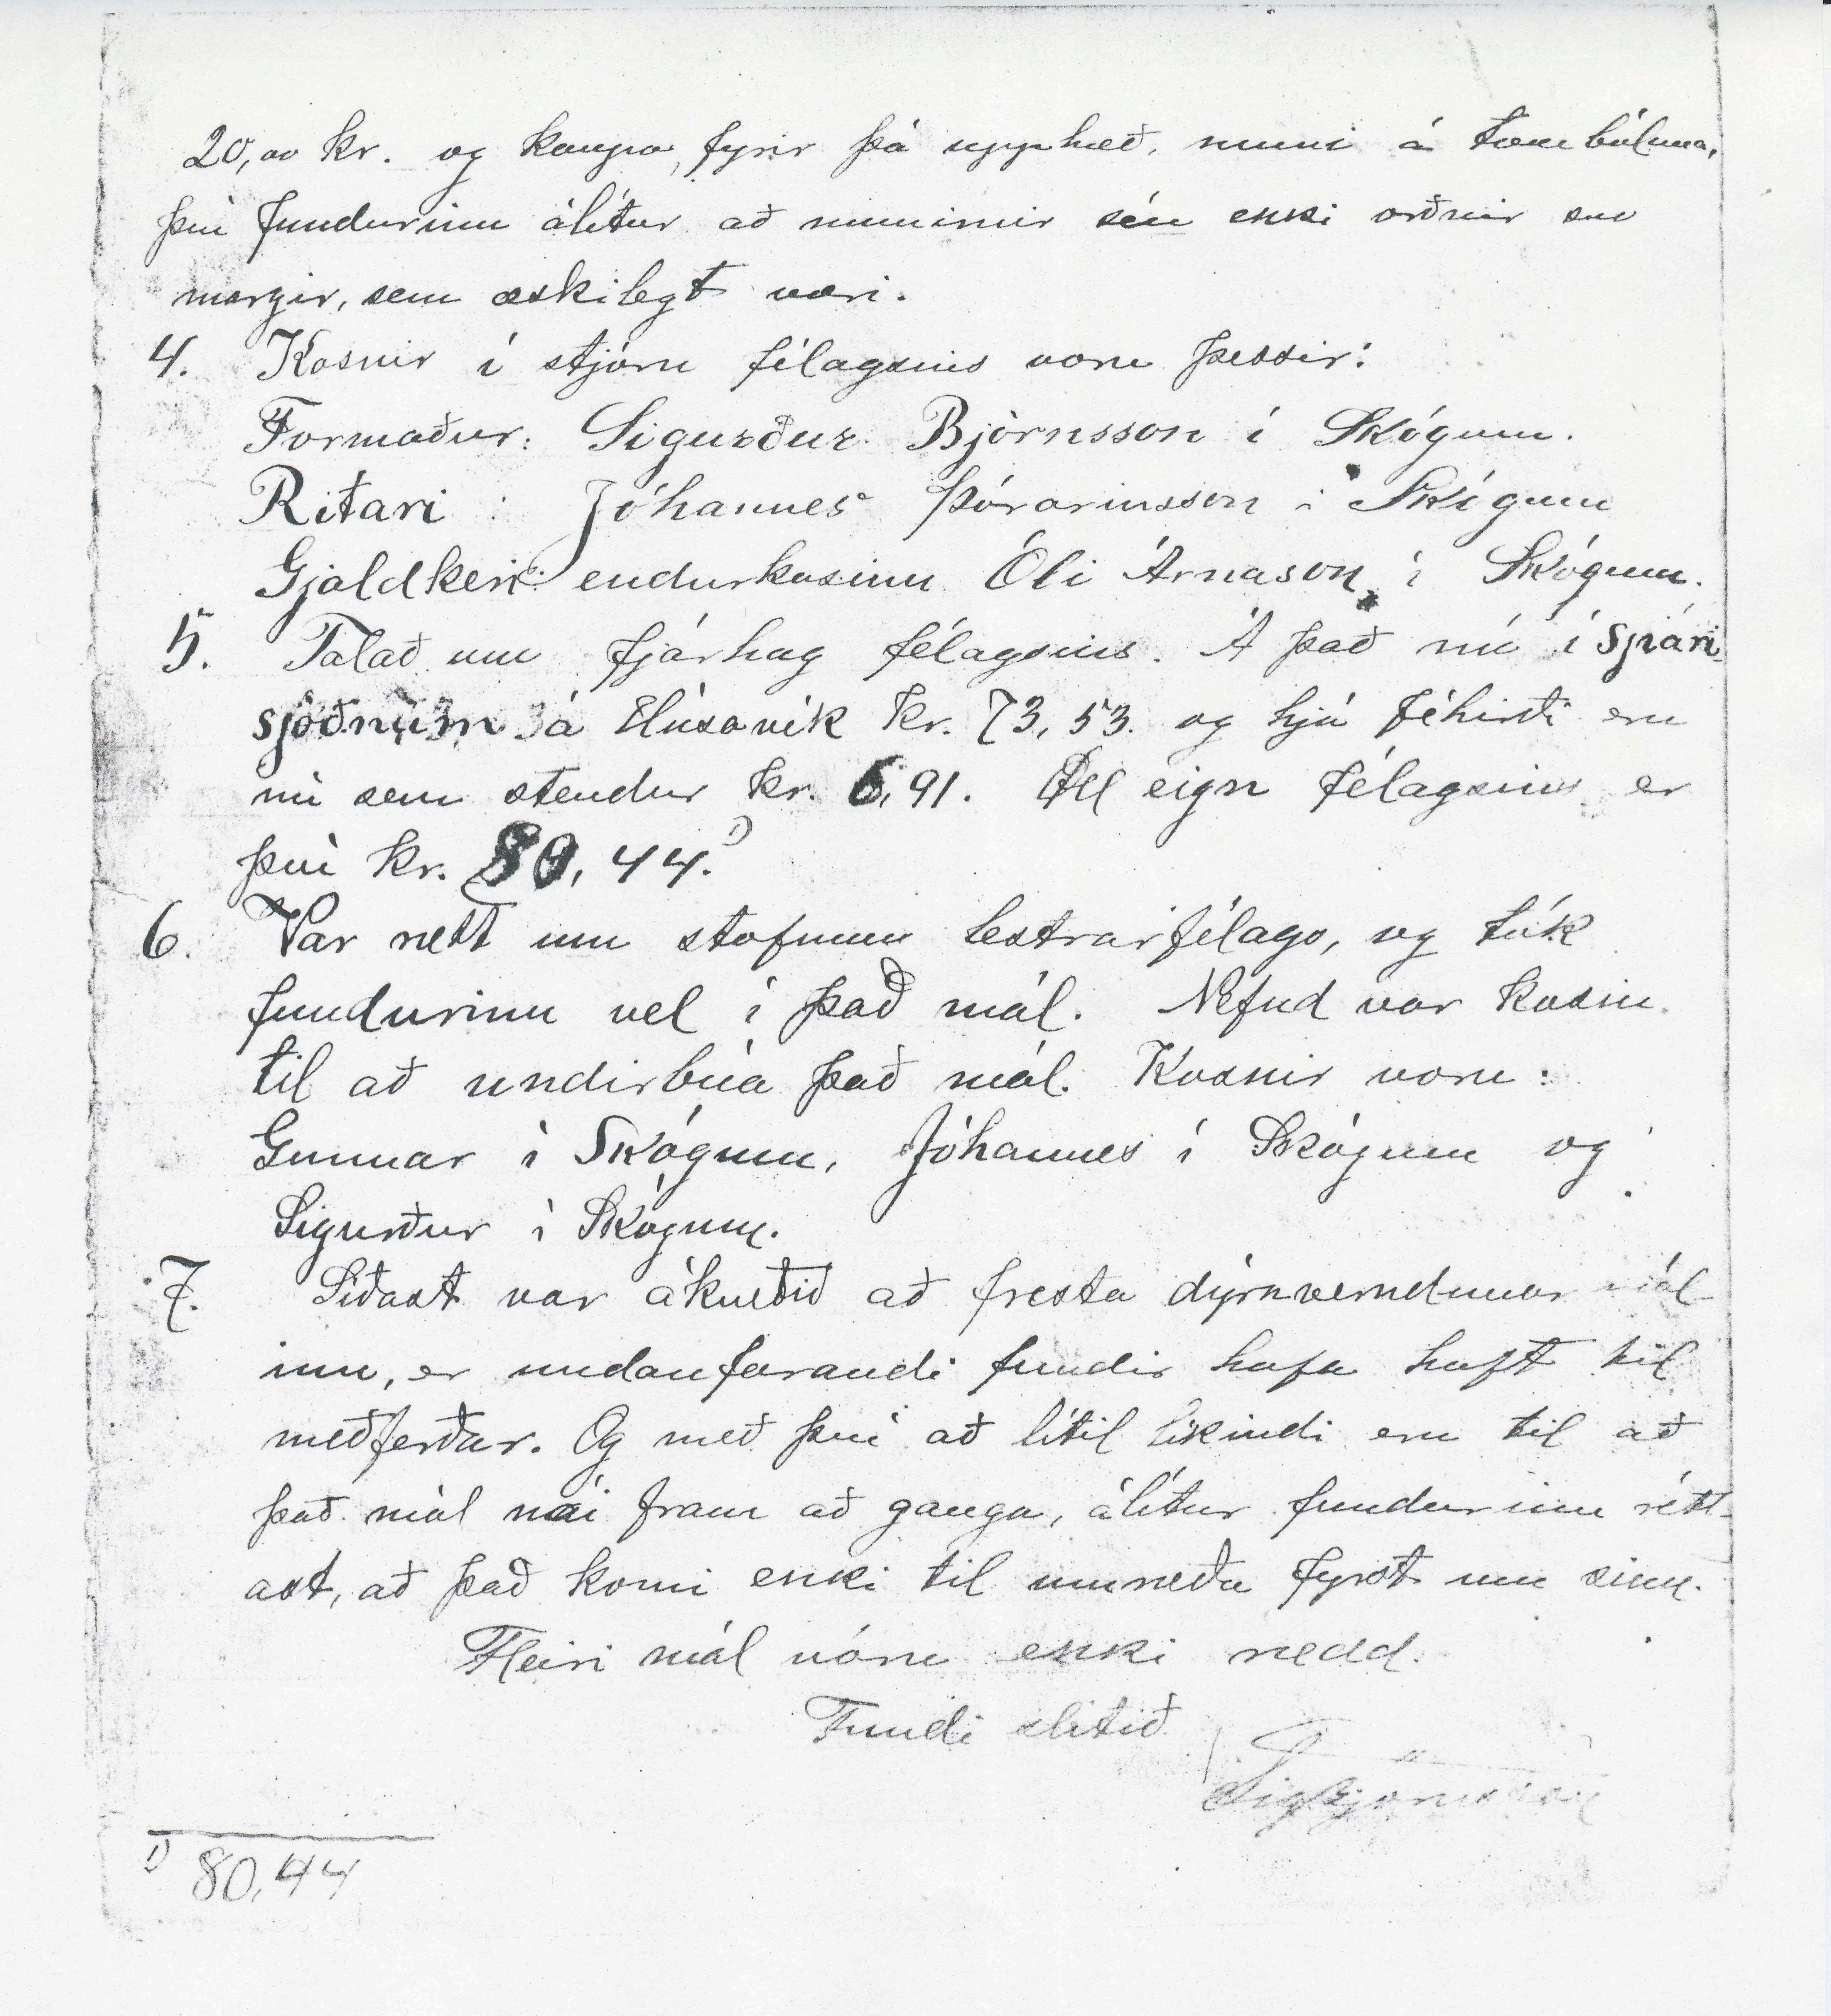 20,00 kr. og kaupa, fyrir þá upphæð, muni á tombóluna,
því fundurinn álítur að munirnir séu ekki orðnir svo
margir, sem æskilegt væri.
4. Kosnir í stjórn félagsins voru þessir:
Formaður: Sigurður Björnsson í Skógum.
Ritari : Jóhannes Þórarinsson í Skógum
Gjaldkeri: endurkosinn Óli Árnason í Skógum.
5. Talað um fjárhag félagsins. Á það nú í Spari
sjóðnum á Húsavík kr. 73,53. og hjá féhirði eru
nú sem stendur kr. 6,91. Öll eign félagsins er
því kr. 80,44.¹⁾
6. Var rætt um stofnun lestrarfélags, og tók
fundurinn vel í það mál. Nefnd var kosin
til að undirbúa það mál. Kosnir voru:
Gunnar í Skógum, Jóhannes í Skógum og
Sigurður í Skógum.
7. Síðast var ákveðið að fresta dýraverndunar mál
inu, er undanfarandi fundir hafa haft til
meðferðar. Og með því að lítil líkindi eru til að
það mál nái fram að ganga, álítur fundurinn rétt-
ast, að það komi ekki til umræðu fyrst um sinn.
Fleiri mál vóru ekki rædd.
Fundi slitið
SigBjörnsson
¹⁾ 80,44